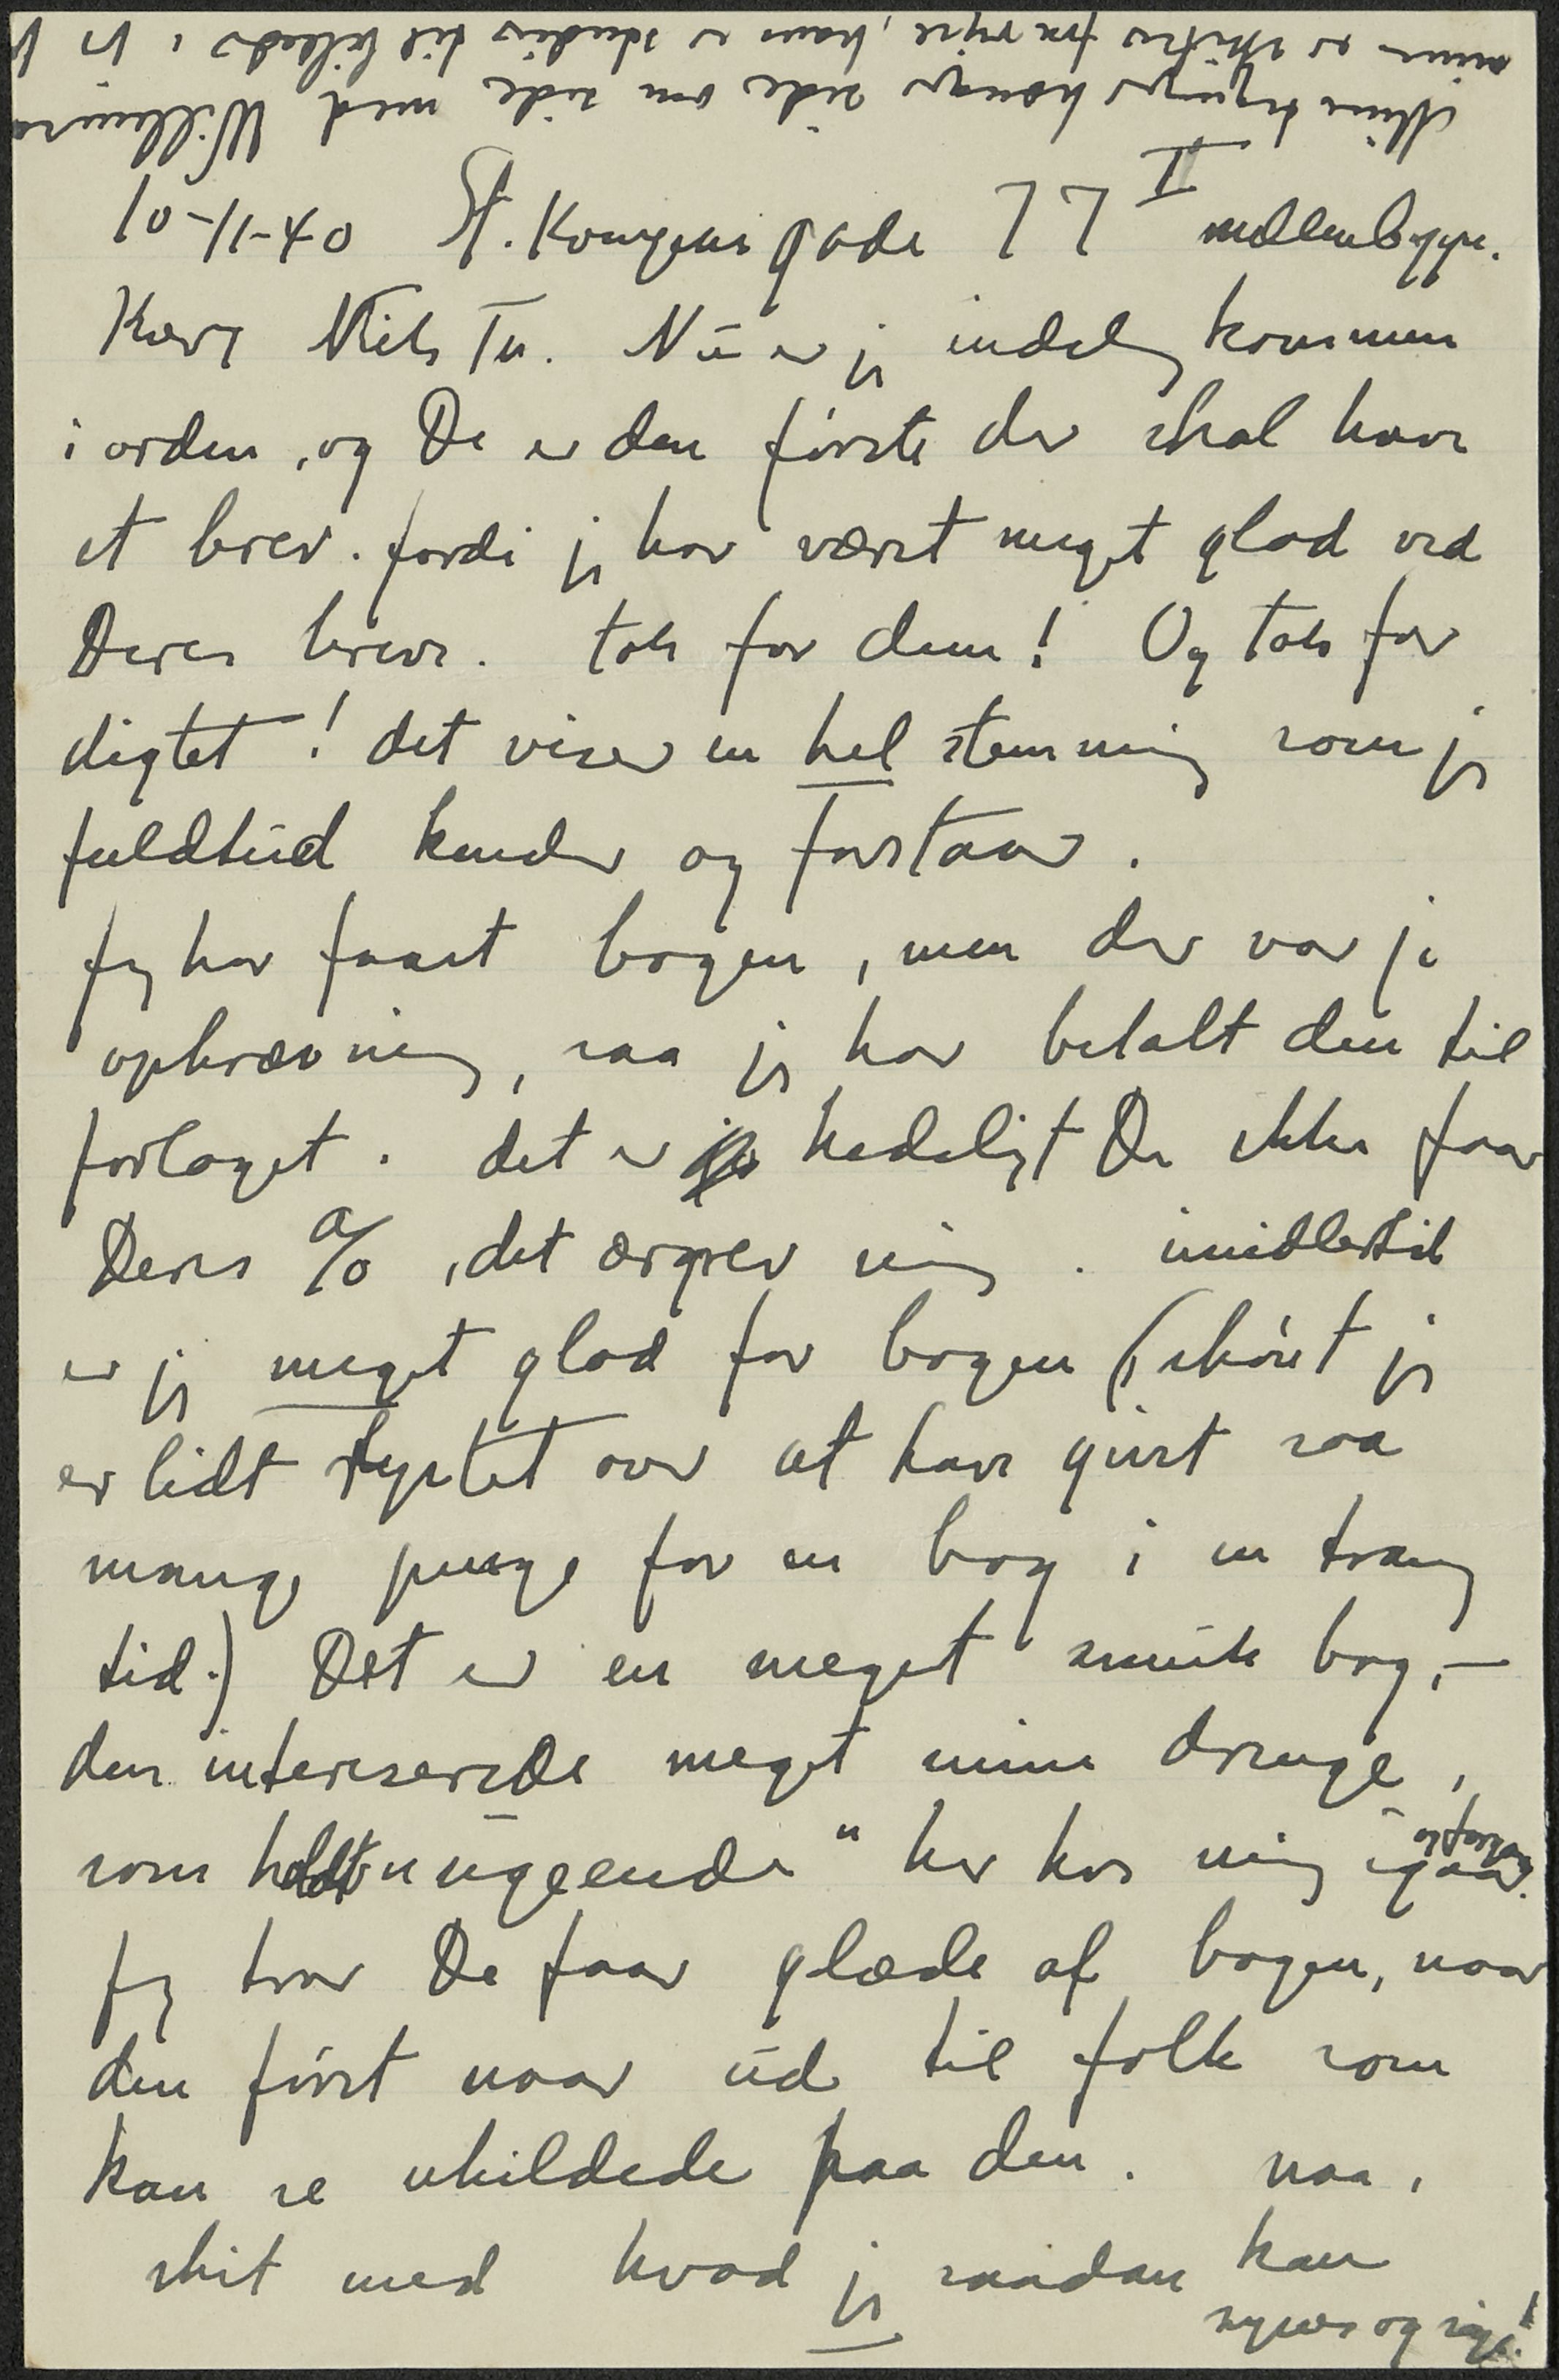 mine er skitser fra rejse, hans er studier til billeds i
Mine tegninger hænger side om side med Willums
10-11-40 St. Kongensgade 77 I mellembygn.
Kære Niels Th. Nu er jeg endelig kommen
i orden, og De er den første der skal have
et brev. fordi jeg har været meget glad ved
Deres breve. tak for dem! Og tak for
digtet! det viser en hel stemning som jeg
fuldtud kender og forstaar.
Jeg har faaet bogen, men der var jo
opkrævning, saa jeg har betalt den til
forlaget. det er kedeligt De ikke faar
Deres %, det ærgrer mig. imidlertid
er jeg meget glad for bogen (skønt jeg
er lidt rystet over at have givet saa
mange penge for en bog i en trang
tid.) Det er en meget smuk bog, –
den interserede meget mine drenge,
som holdt "ugeende" her hos mig igaar.
Jeg tror De faar glæde af bogen, naar
den først naar ud til folk som
kan se uhildede paa den. naa,
skit med hvad jeg saadan kan
synes og sige!